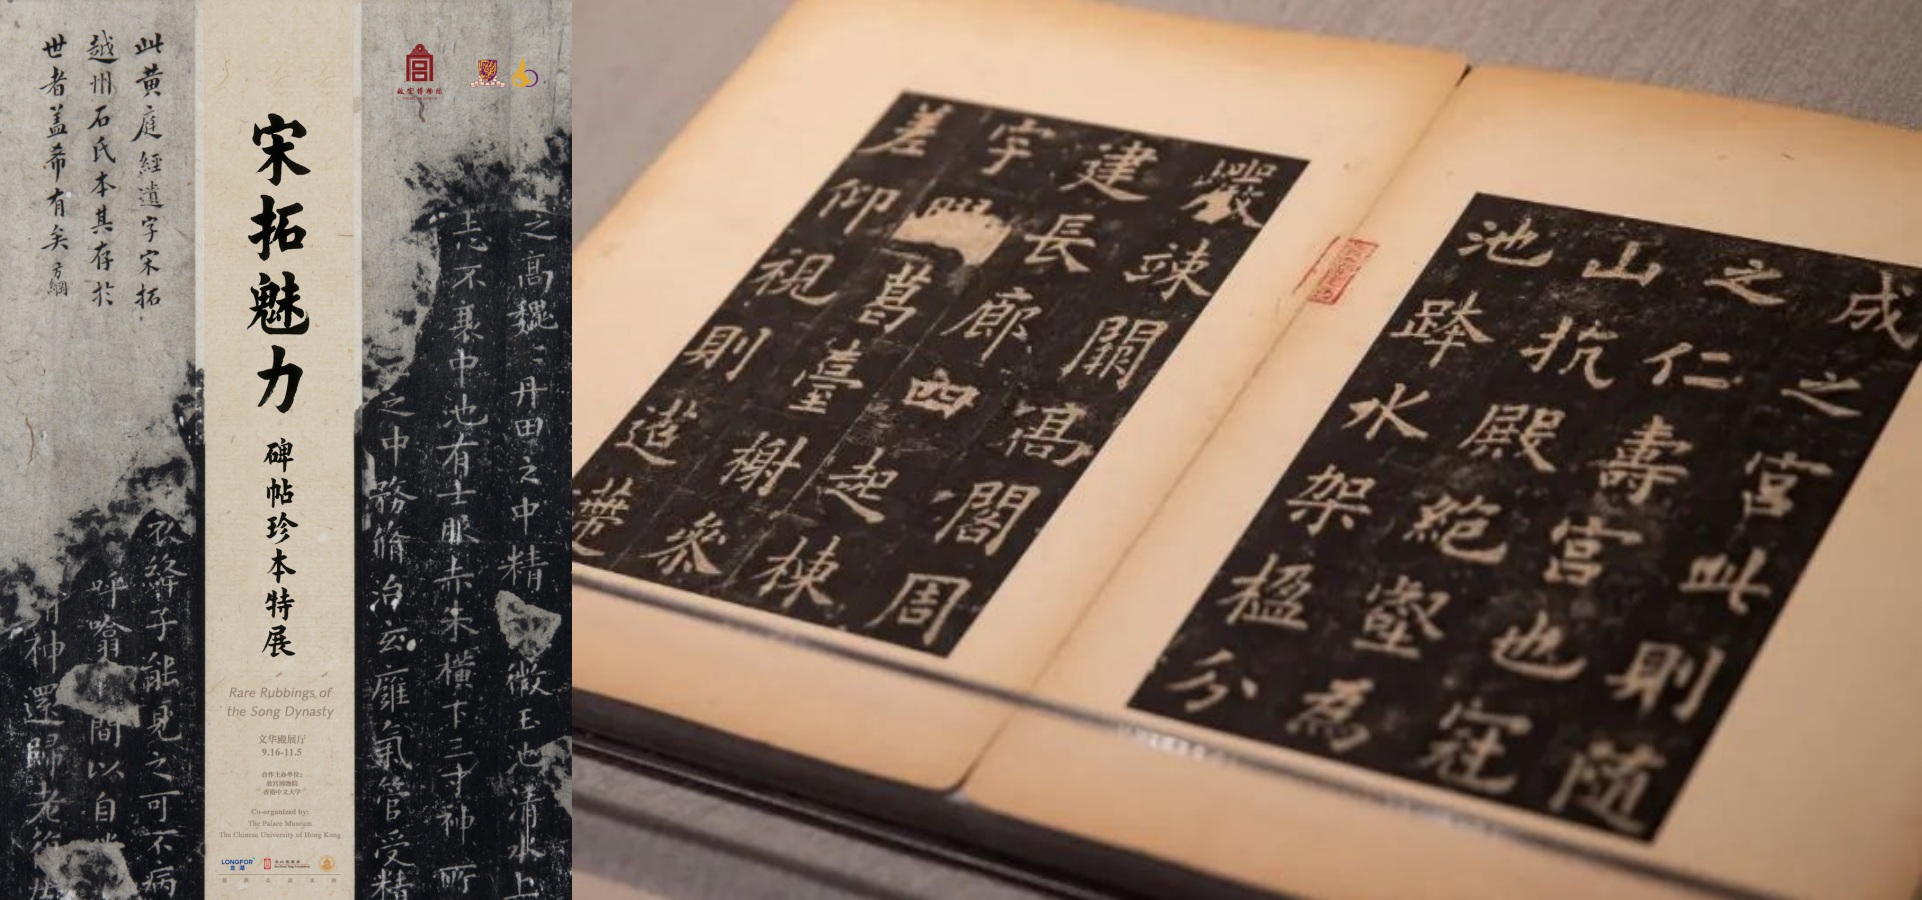 此黄庭經遺字宋拓
越州石氏本其存於
世者盖希有矣 方綱
故宫博物院
宋拓魅力
碑帖珍本特展
Rare Rubbings of
the Song Dynasty
文华殿展厅
9.16-11.5
合作主办单位:
故宫博物院
香港中文大学
Co-organized by:
The Palace Museum
The Chinese University of Hong Kong
LONGFOR
龙湖
之高巍〻丹田之中精微玉池清水上
志不衰中池有士服赤朱横下三寸神所
之中務脩治玄廱氣管受精
衣絳子能見之可不病
呼噏間以自
神還歸老
成之宮此則隨
之仁壽宮也冠
山抗殿絕壑為
池跨水架楹分
巖竦闕高閣周
建長廊四起棟
宇膠葛臺榭參
差仰視則迢遰